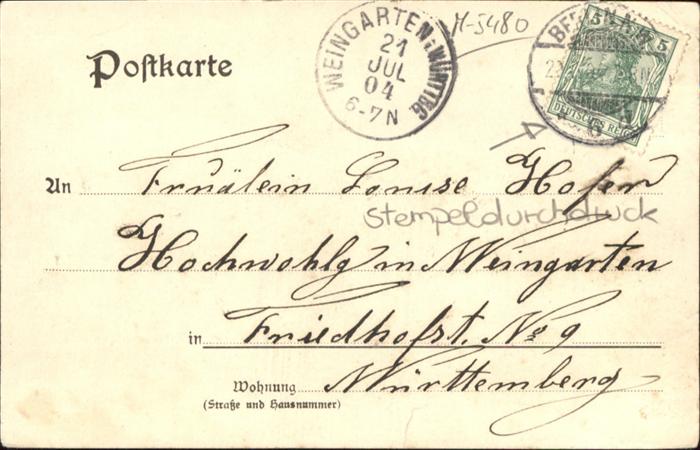 M-5480
WEINGARTEN (WÜRTTBG
21
JUL
04
6-7N
5 5
DEUTSCHES REICH
Postkarte
An Fräulein Louise Hofer
stempeldurchdruck
Hochwohlg in Weingarten
in Friedhofst. No 9
Wohnung Württemberg
(Straße und Hausnummer)